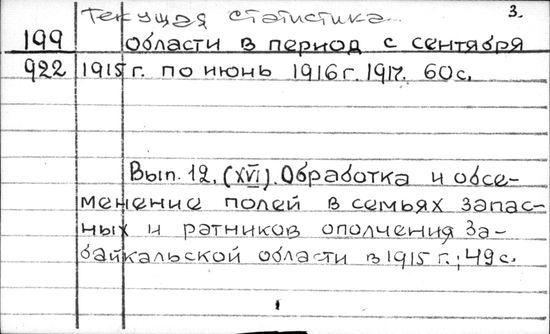 Текущая статистика...
3.
199 области в период с сентября
922 1915 г. по июнь 1916 г. 1917. 60 с.
Вып. 12. (XVI). Обработка и обсе-
менение полей в семьях запас-
ных и ратников ополчения За-
байкальской области в 1915 г.; 49 с.